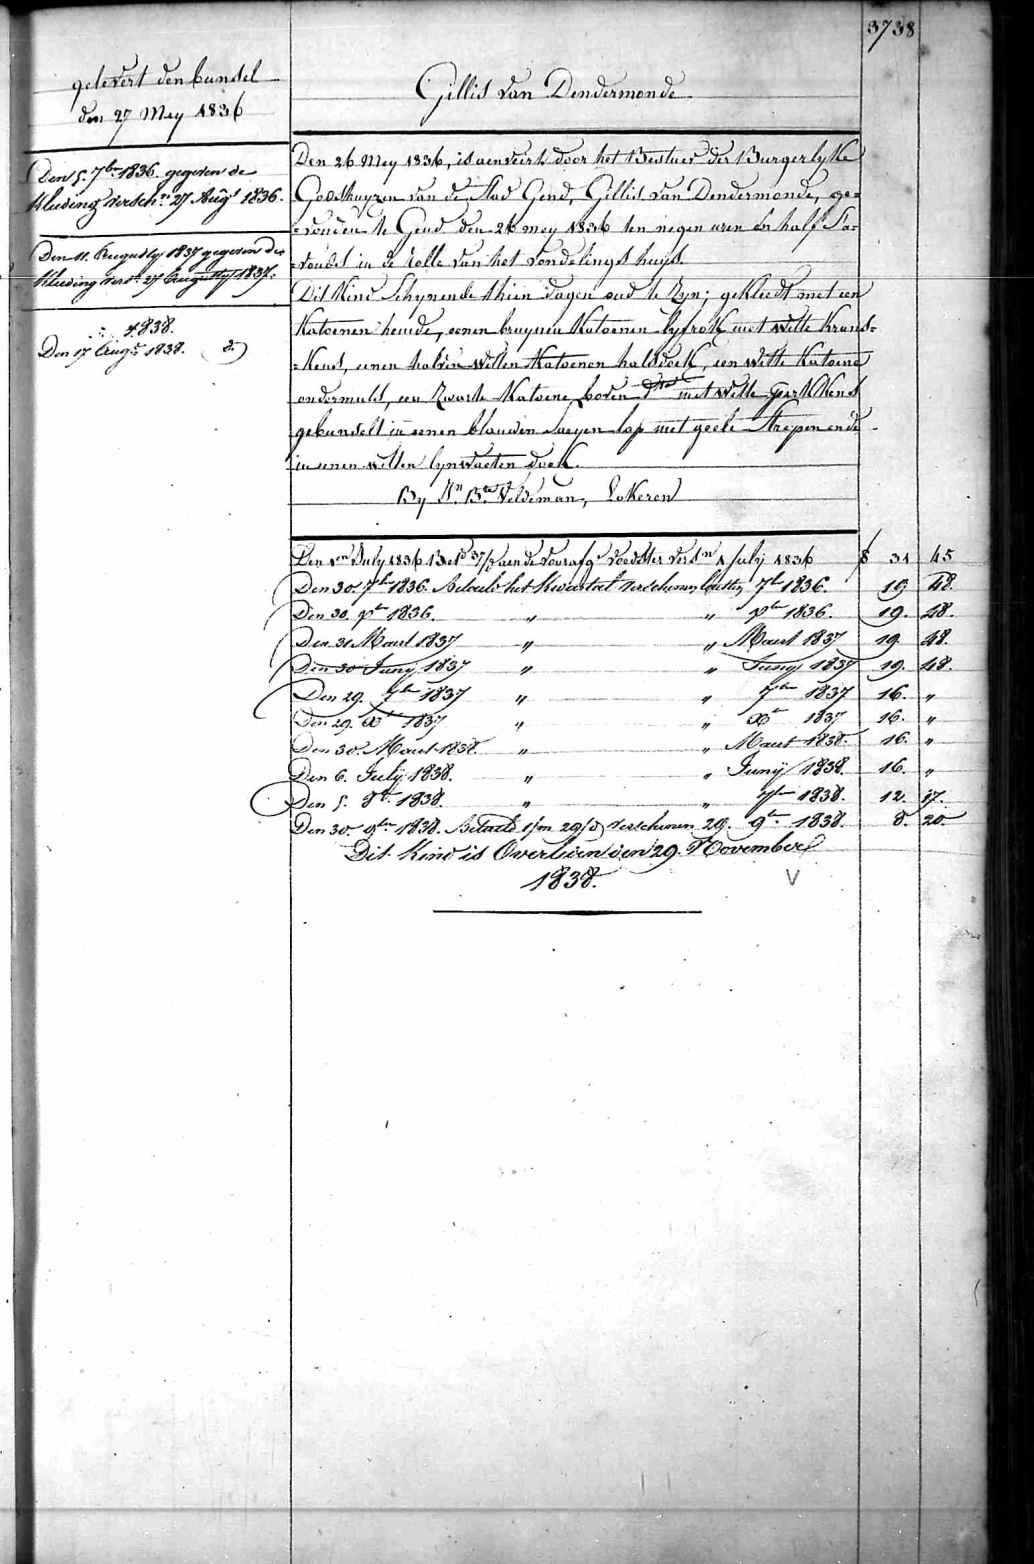 3738
gelevert den bundel
den 27 Mey 1836
Den 5. 7ber 1836. gegeven de
kleeding versch. 27 Augt 1836.
Den 11. Augusty 1837 gegeven de
kleeding vers. 27 Augusty 1837.
1838.
Den 17 Augt 1838.
Gillis van Dendermonde
Den 26 Mey 1836, is aenveirt door het Bestuer der Burgerlyke
Godshuyzen van de Stad Gend, Gillis van Dendermonde, ge=
=vonden te Gend den 26 mey 1836 ten negen uren en half Sa=
=vonds in de rolle van het vondelings huys.
Dit Kind schynende thien dagen oud te zyn; gekleedt met een
Katoenen hemde, eenen bruynen Katoenen lyfrok met witte Krans=
=kens, eenen halven witten Katoenen halsdoek, een witte Katoene
ondermuts, een zwarte Katoene boven dto met witte perkkens
gebundelt in eenen blauwen saeyen lap met geele strepen ende
in eenen witten lynwaeten doek.
By Bta Veldeman, Lokeren
Den 1en July 1836 aen de voorafge voedster versn 1 July 1836 31 45
Den 30. 7br 1836. Betaeld het Kwartael verschenen lasten 7br 1836. 19 48.
Den 30. Xbr 1836. " " Xbr 1836. 19. 48.
Den 31 Maert 1837 " " Maert 1837 19 48.
Den 30 Juny 1837 " " Juny 1837 19. 48.
Den 29. 7br 1837 " " 7br 1837 16. "
Den 29. Xbr 1837 " " Xbr 1837 16. "
Den 30. Maert 1838. " " Maert 1838. 16. "
Den 6. July 1838. " " Juny 1838. 16. "
Den 5. 8br 1838. " " 7br 1838. 12. 17.
Den 30. 9br 1838. Betaeld verschenen 29. 9br 1838. 8. 20.
Dit Kind is Overleden den 29. November
1838. V